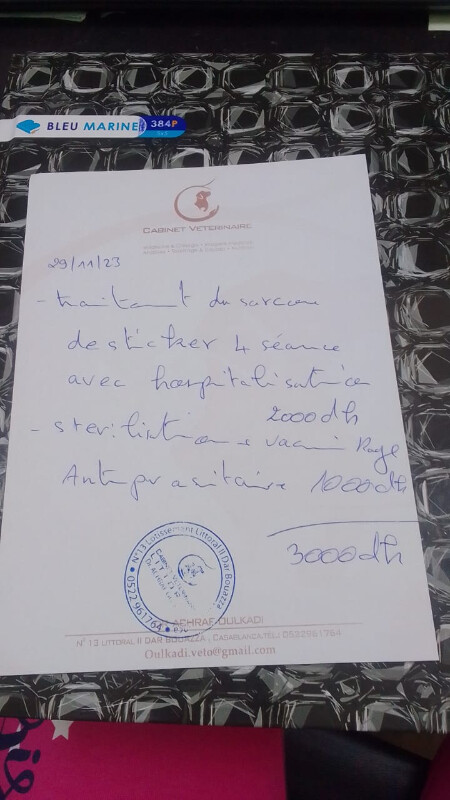 BLEU MARINE 384P
CABINET VETERINAIRE
29/11/23
- traitement du sarcome
de sticker 4 séance
avec hospitalisation
2000dh
- sterilisation + vaccin Rage
Antiprasitaire 1000dh
3000dh
N°13 Lotissement Littoral II Dar Bouazza
0522.961764
ACHRAF OULKADI
N° 13 LITTORAL II DAR BOUAZZA, CASABLANCA TEL: 0522961764
Oulkadi.veto@gmail.com